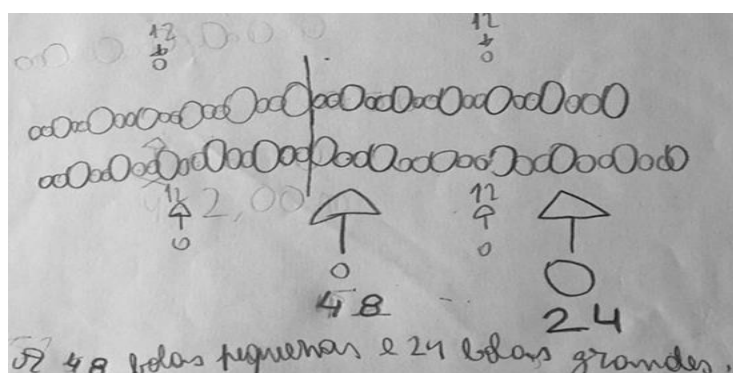 12 12
12 2,00 12
48 24
R 48 bolas pequenas e 24 bolas grandes.